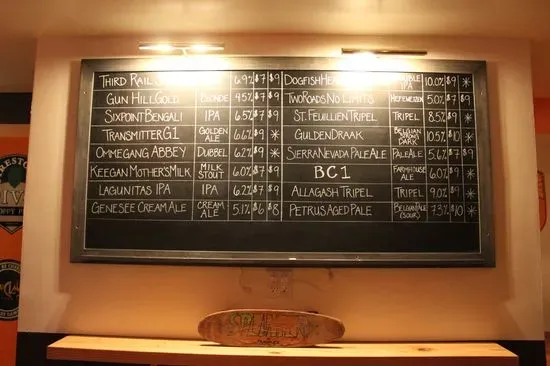 THIRD RAIL 6.9% $7 $9
GUN HILL GOLD BLONDE 4.5% $7 $9
SIXPOINT BENGALI IPA 6.5% $7 $9
TRANSMITTER G1 GOLDEN ALE 6.6% $9 *
OMMEGANG ABBEY DUBBEL 6.2% $9 *
KEEGAN MOTHER'S MILK MILK STOUT 6.0% $7 $9
LAGUNITAS IPA IPA 6.2% $7 $9
GENESEE CREAM ALE CREAM ALE 5.1% $6 $8
DOGFISH HEAD IPA 10.0% $9 *
TWO ROADS NO LIMITS HEFEWEIZEN 5.0% $7 $9
ST. FEUILLIEN TRIPEL TRIPEL 8.5% $9 *
GULDEN DRAAK BELGIAN STRONG DARK 10.5% $10 *
SIERRA NEVADA PALE ALE PALE ALE 5.6% $7 $9
BC1 FARMHOUSE ALE 6.0% $9 *
ALLAGASH TRIPEL TRIPEL 9.0% $9 *
PETRUS AGED PALE BELGIAN ALE (SOUR) 7.3% $10 *